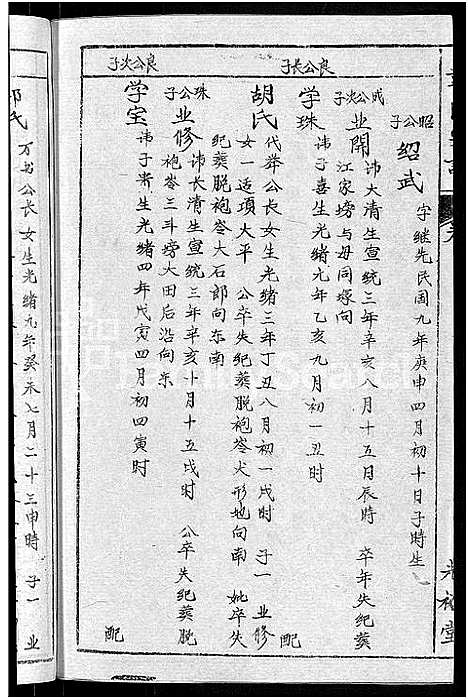 昭公子
绍武 字继先民国九年庚申四月初十日子時生
成公次子
业開 讳大清生宣统三年辛亥八月十五日辰時 卒年失纪葬
江家塝与母同塚向
良公長子
学珠 讳子喜生光绪元年乙亥九月初一丑时 配
胡氏 代举公長女生光绪三年丁丑八月初一戌时 子一 业修
女一适項大平 公卒失纪葬脱袍岺犬形地向南 妣卒失
纪葬脱袍岺大石郎向东南
珠公子
业修 讳长清生宣统三年辛亥十月十五戌时 公卒失纪葬脱
袍岺三斗塝大田后沿向东
良公次子
学宝 讳子贵生光绪四年戊寅四月初四寅时 配
氏 万书公长女生光绪九年癸未七月二十三申時 子一 业